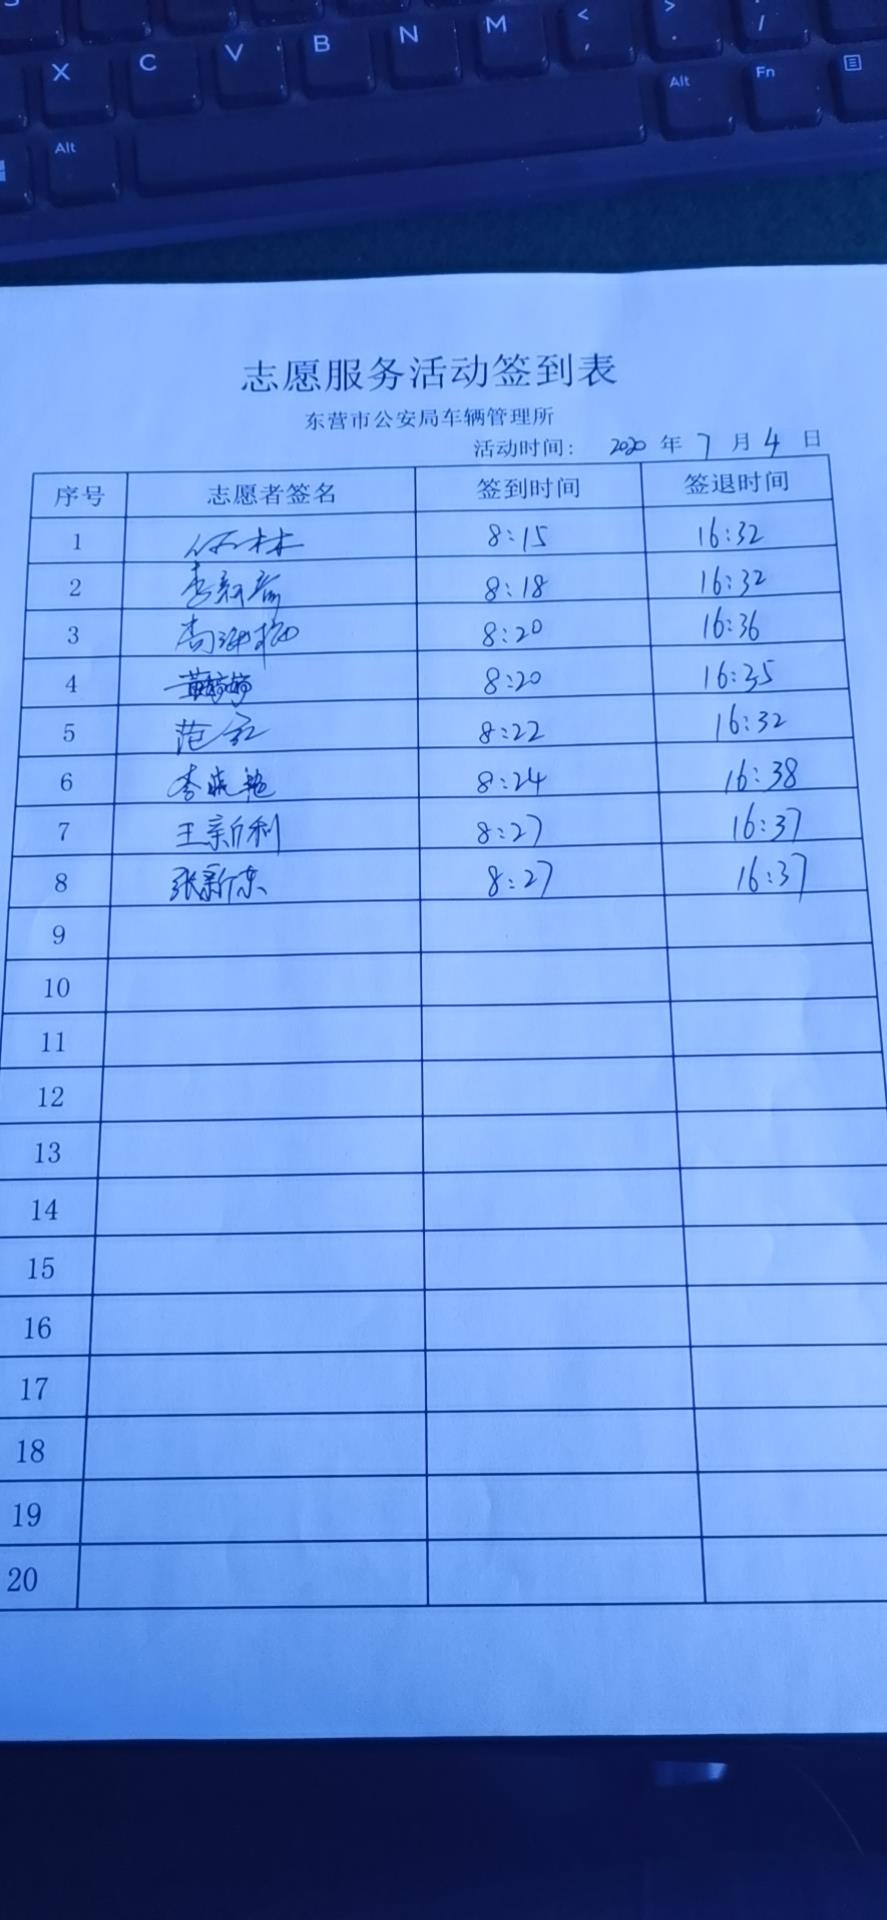 X C V B N M < , > . / Alt Fn
Alt
志愿服务活动签到表
东营市公安局车辆管理所
活动时间： 2020 年 7 月 4 日
序号 志愿者签名 签到时间 签退时间
1 8:15 16:32
2 8:18 16:32
3 8:20 16:36
4 黄婷婷 8:20 16:35
5 8:22 16:32
6 李晓艳 8:24 16:38
7 王新利 8:27 16:37
8 张新东 8:27 16:37
9
10
11
12
13
14
15
16
17
18
19
20